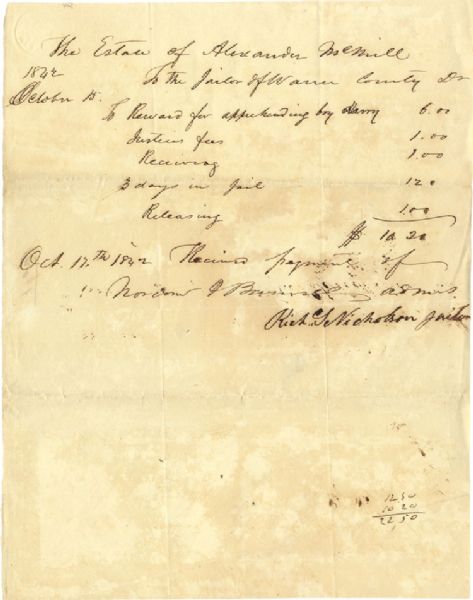 The Estate of Alexander McNeill
1842 To the Jailor of Warren County Dr
October 15. To Reward for apprehending boy Harry 6.00
Justices fees 1.00
Receiving 1.00
3 days in jail 1.20
Releasing 1.00
$ 10 20
Oct. 17th 1842 Received payment of
admr
Rich. S Nicholson jailor
12 50
10 20
22 50